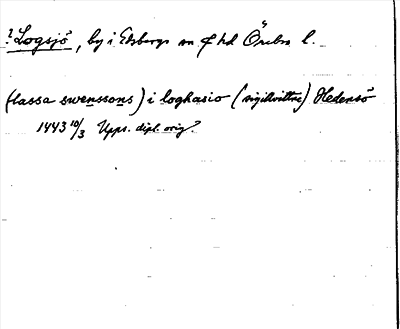 ? Logsjö, by i Ekebergs sn hd Örebro l.
(lassa swenssons) i loghasio (sigillvittne) Hedensö
1443 10/3 Upps. dipl. orig.